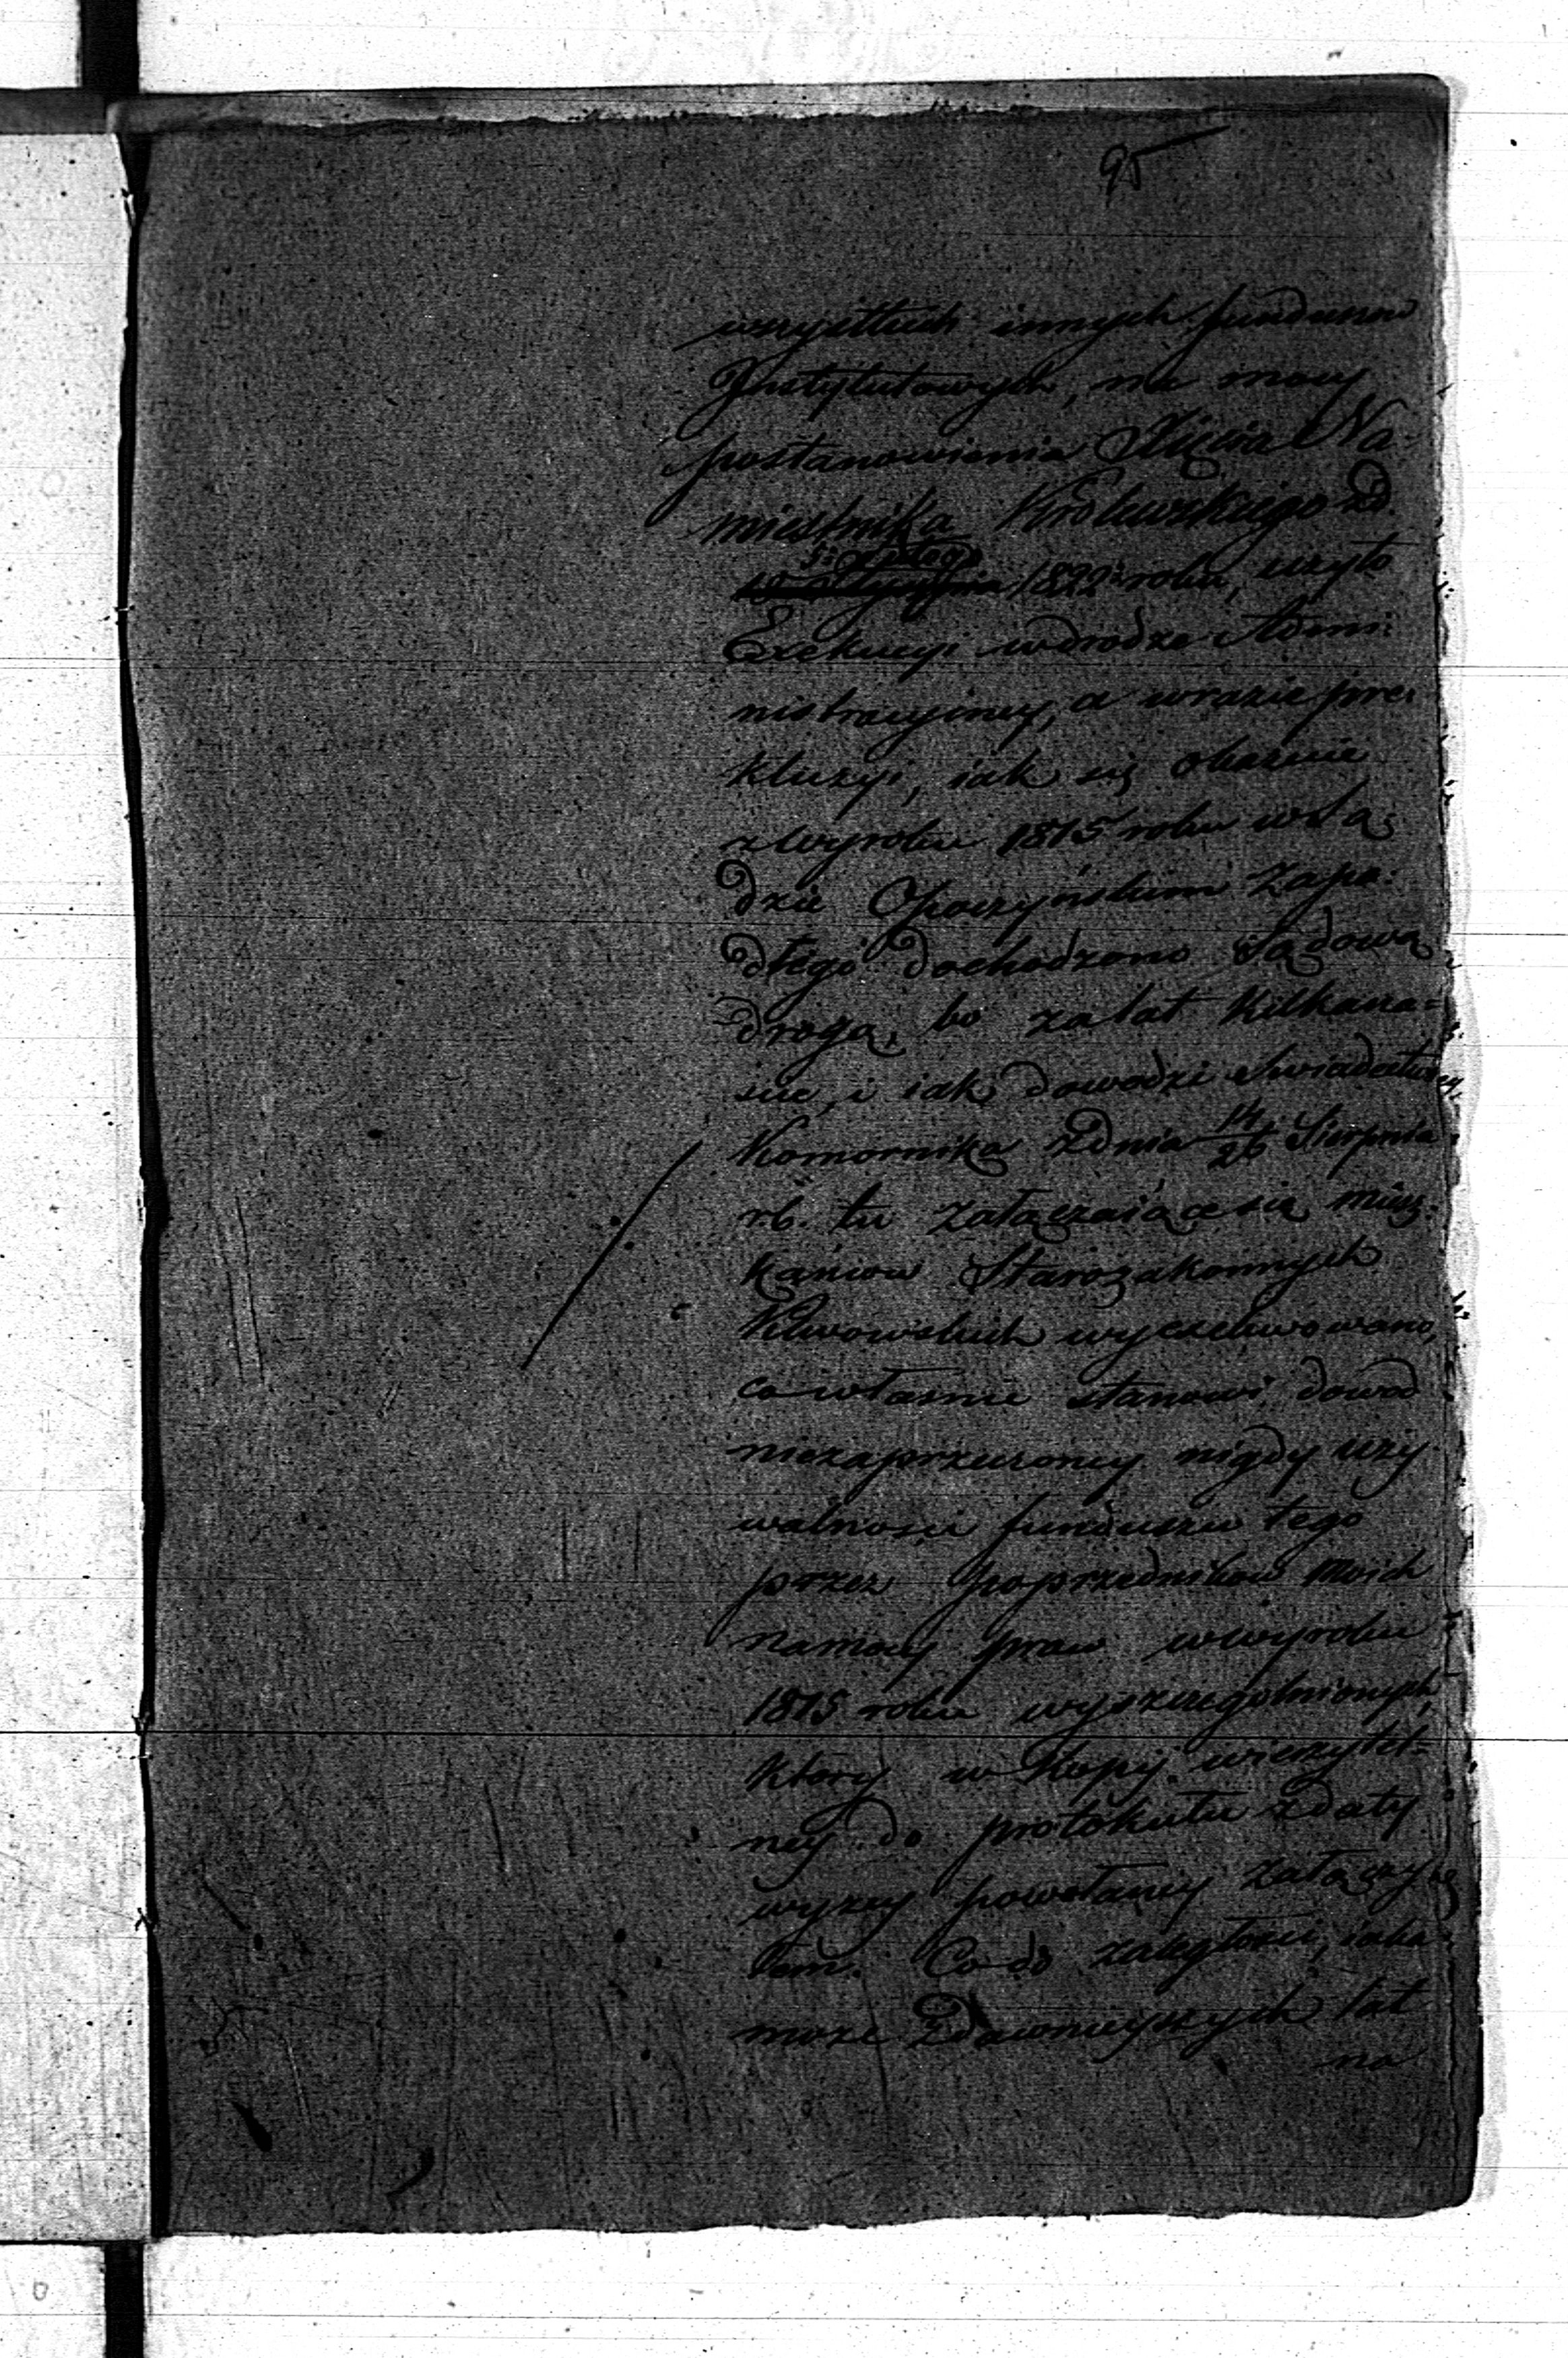 95
wszystkich innych fundusow
Jnstytutowych, na mocy
postanowienia Xięcia Na-
miestnika Królewskiego zd.
1822 roku, użyto
Exekucyi wdrodze Admi:
nistracyiney, a wrazie pre:
kluzyi, iak się okazuie
zwyroku 1815 roku wSą:
dzie Opoczyńskim zapa:
dłego dochodzono Sądową
drogą, bo za lat kilkana=
ście, i iak dowodzi Swiadectwo
Komornika zdnia 14/26 Sierpnia
r.b. tu załączaiące się miesz:
kańcow Starozakonnych
Klwowskich wyexekwowano,
co własnie stanowi dowod
niezaprzeczoney nigdy uży
walności funduszu tego
przez poprzedników moich
namocy praw wwyroku
1815 roku wyszczegolnionych,
ktory w kopij wierzytel=
ney do protokułu zdaty
wyzey powołaney załączy
łem. Co do zaległości, iaka
może zdawnieyszych lat
na